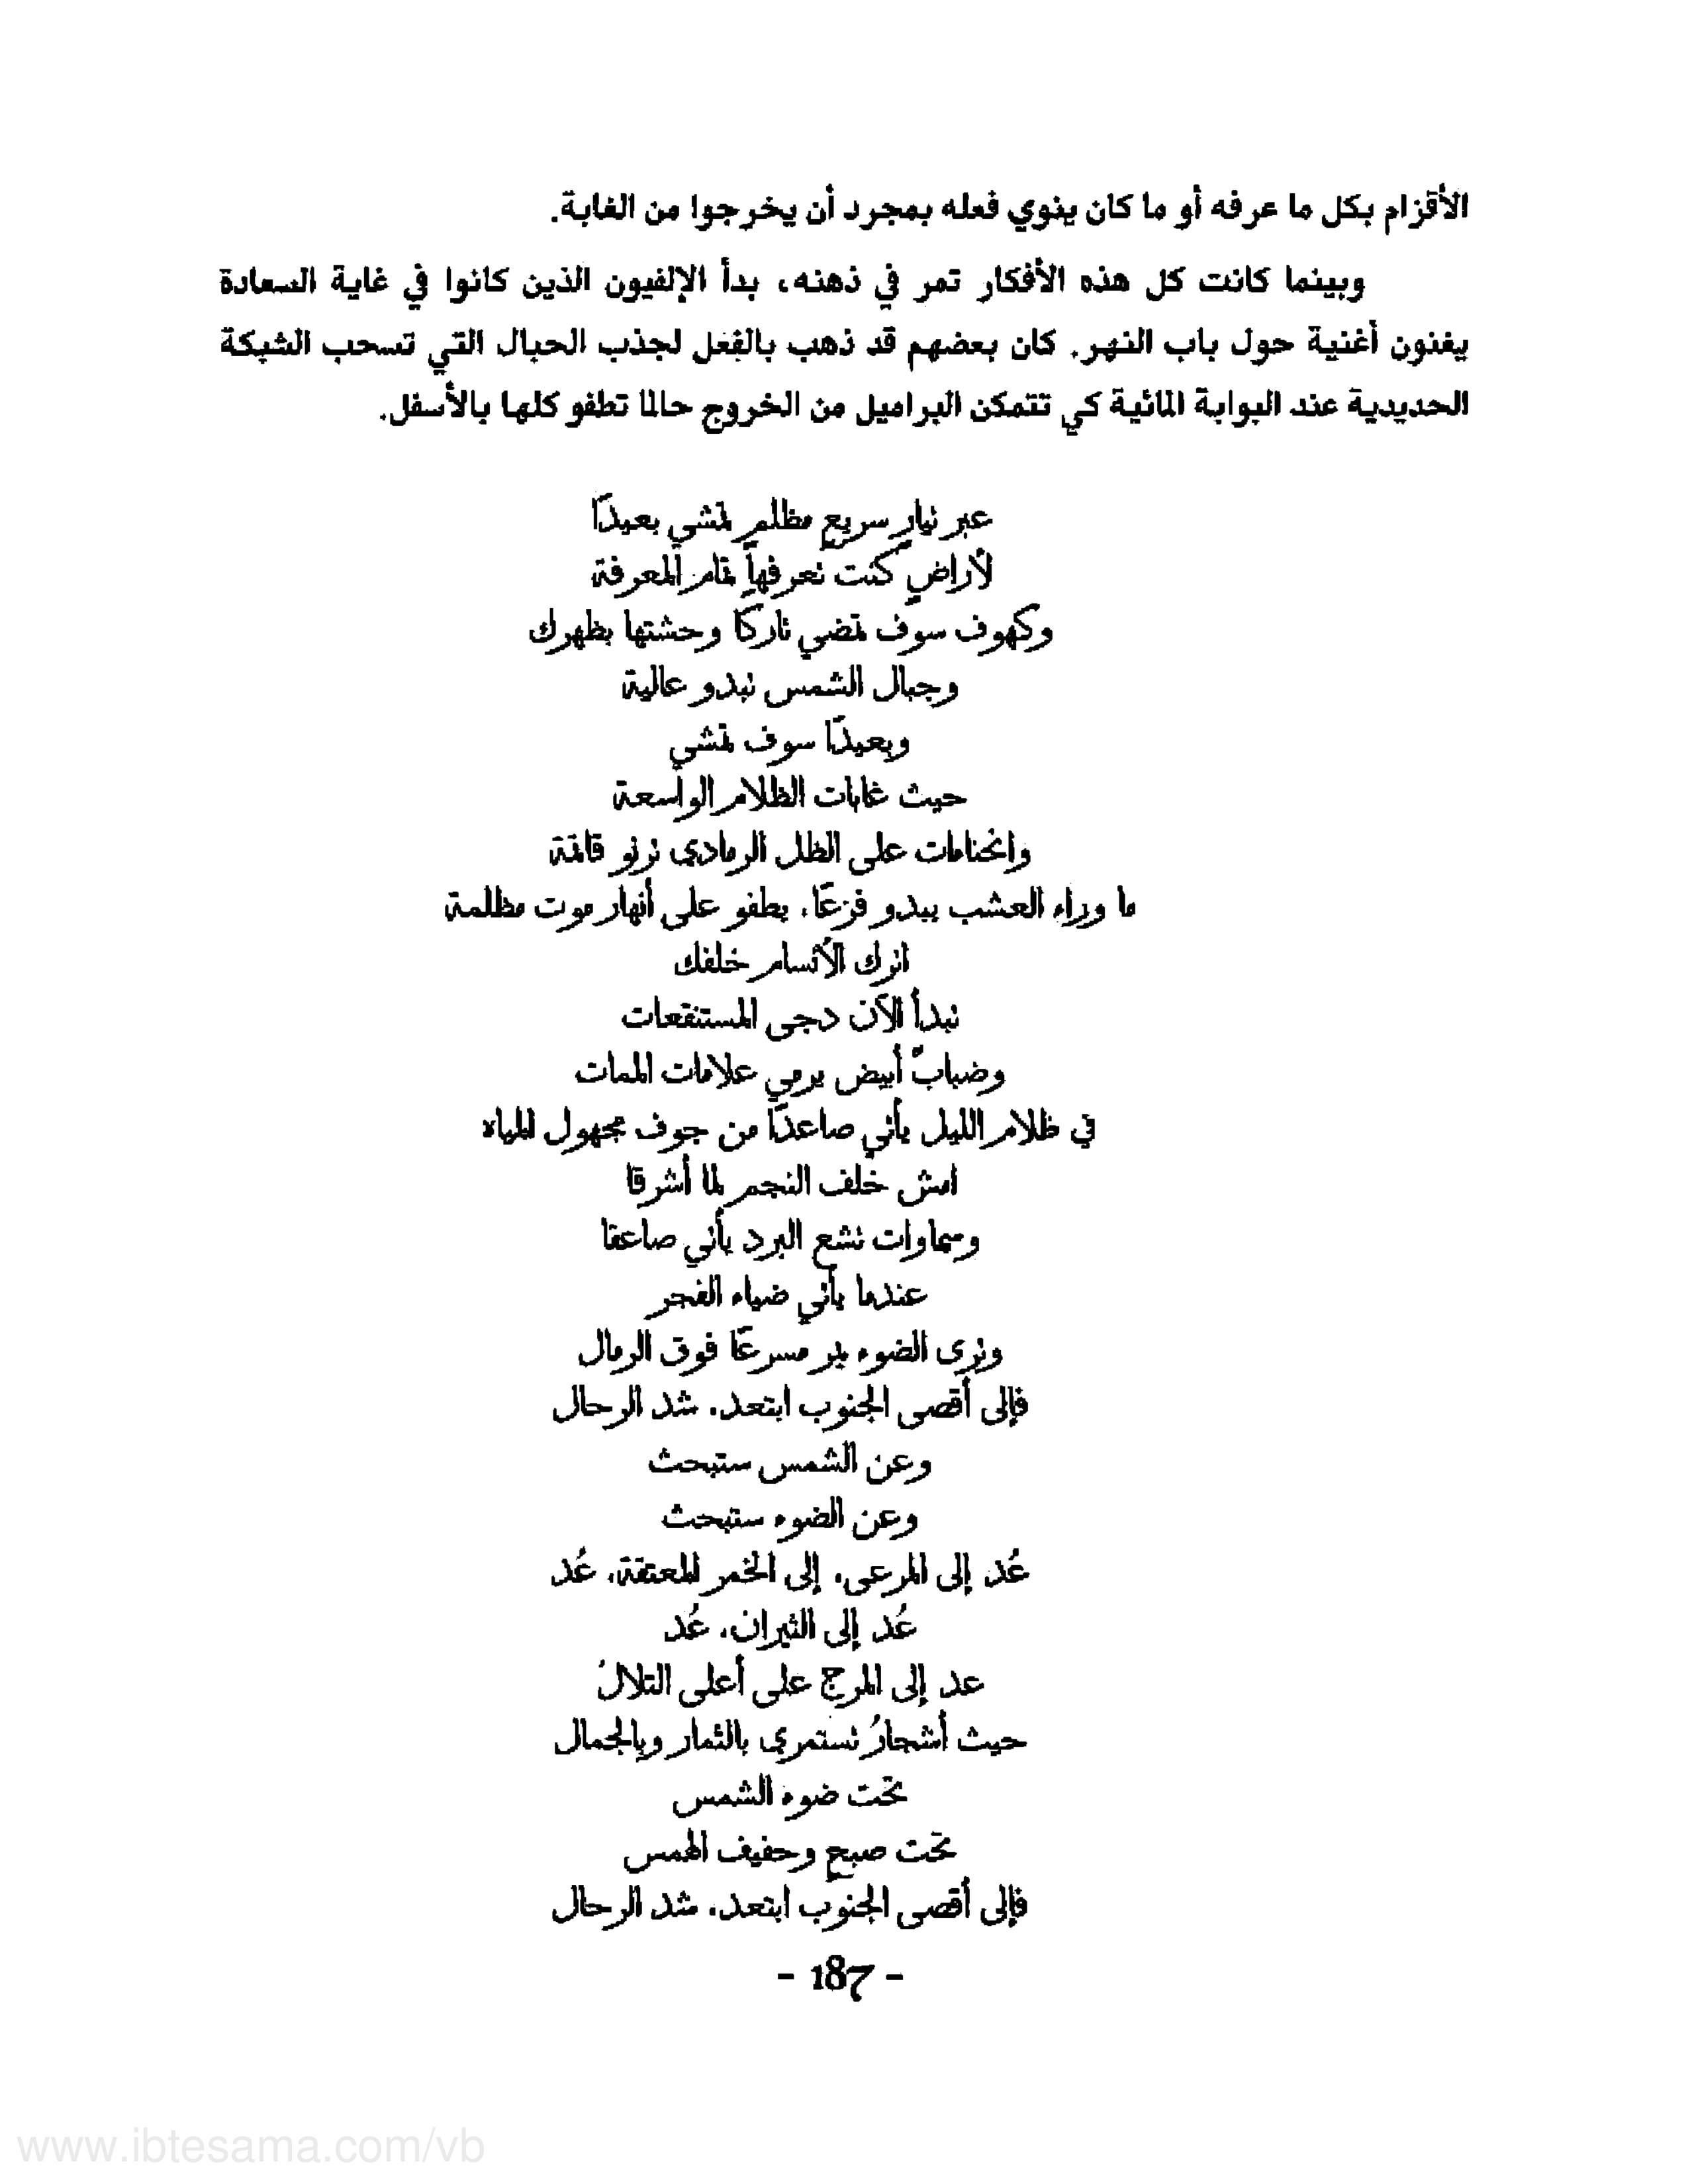 الأقزام بكل ما عرفه أو ما كان ينوي فعله بمجرد أن يخرجوا من الغابة.
وبينما كانت كل هذه الأفكار تمر في ذهنه، بدأ الإلفيون الذين كانوا في غاية السعادة
يغنون أغنية حول باب النهر. كان بعضهم قد ذهب بالفعل لجذب الحبال التي تسحب الشبكة
الحديدية عند البوابة المائية كي تتمكن البراميل من الخروج حالما تطفو كلها بالأسفل.
عبر تيارٍ سريعٍ مظلمٍ تمشي بعيدًا
لأراضٍ كنت تعرفها تمام المعرفة
وكهوف سوف تمضي تاركًا وحشتها بظهرك
وجبال الشمس تبدو عالية
وبعيدًا سوف تمشي
حيث غابات الظلام الواسعة
وانحناءات على الظل الرمادي ترنو قاتمة
ما وراء العشب يبدو فزعًا، يطفو على أنهار موت مظلمة
اترك الأنسام خلفك
تبدأ الآن دجى المستنقعات
وضبابٌ أبيض يرمي علامات الممات
في ظلام الليل يأتي صاعدًا من جوف مجهول المياه
امش خلف النجم لما أشرقا
وسماوات تشع البرد يأتي صاعقا
عندما يأتي ضياء الفجر
وترى الضوء يمر مسرعًا فوق الرمال
فإلى أقصى الجنوب ابتعد، شد الرحال
وعن الشمس ستبحث
وعن الضوء ستبحث
عُد إلى المرعى، إلى الخمر المعتقة، عُد
عُد إلى الثيران، عُد
عد إلى المرج على أعلى التلالْ
حيث أشجارُ تستمري بالثمار وبالجمال
تحت ضوء الشمس
تحت صبحٍ وحفيف الهمس
فإلى أقصى الجنوب ابتعد، شد الرحال
- 187 -
www.ibtesama.com/vb